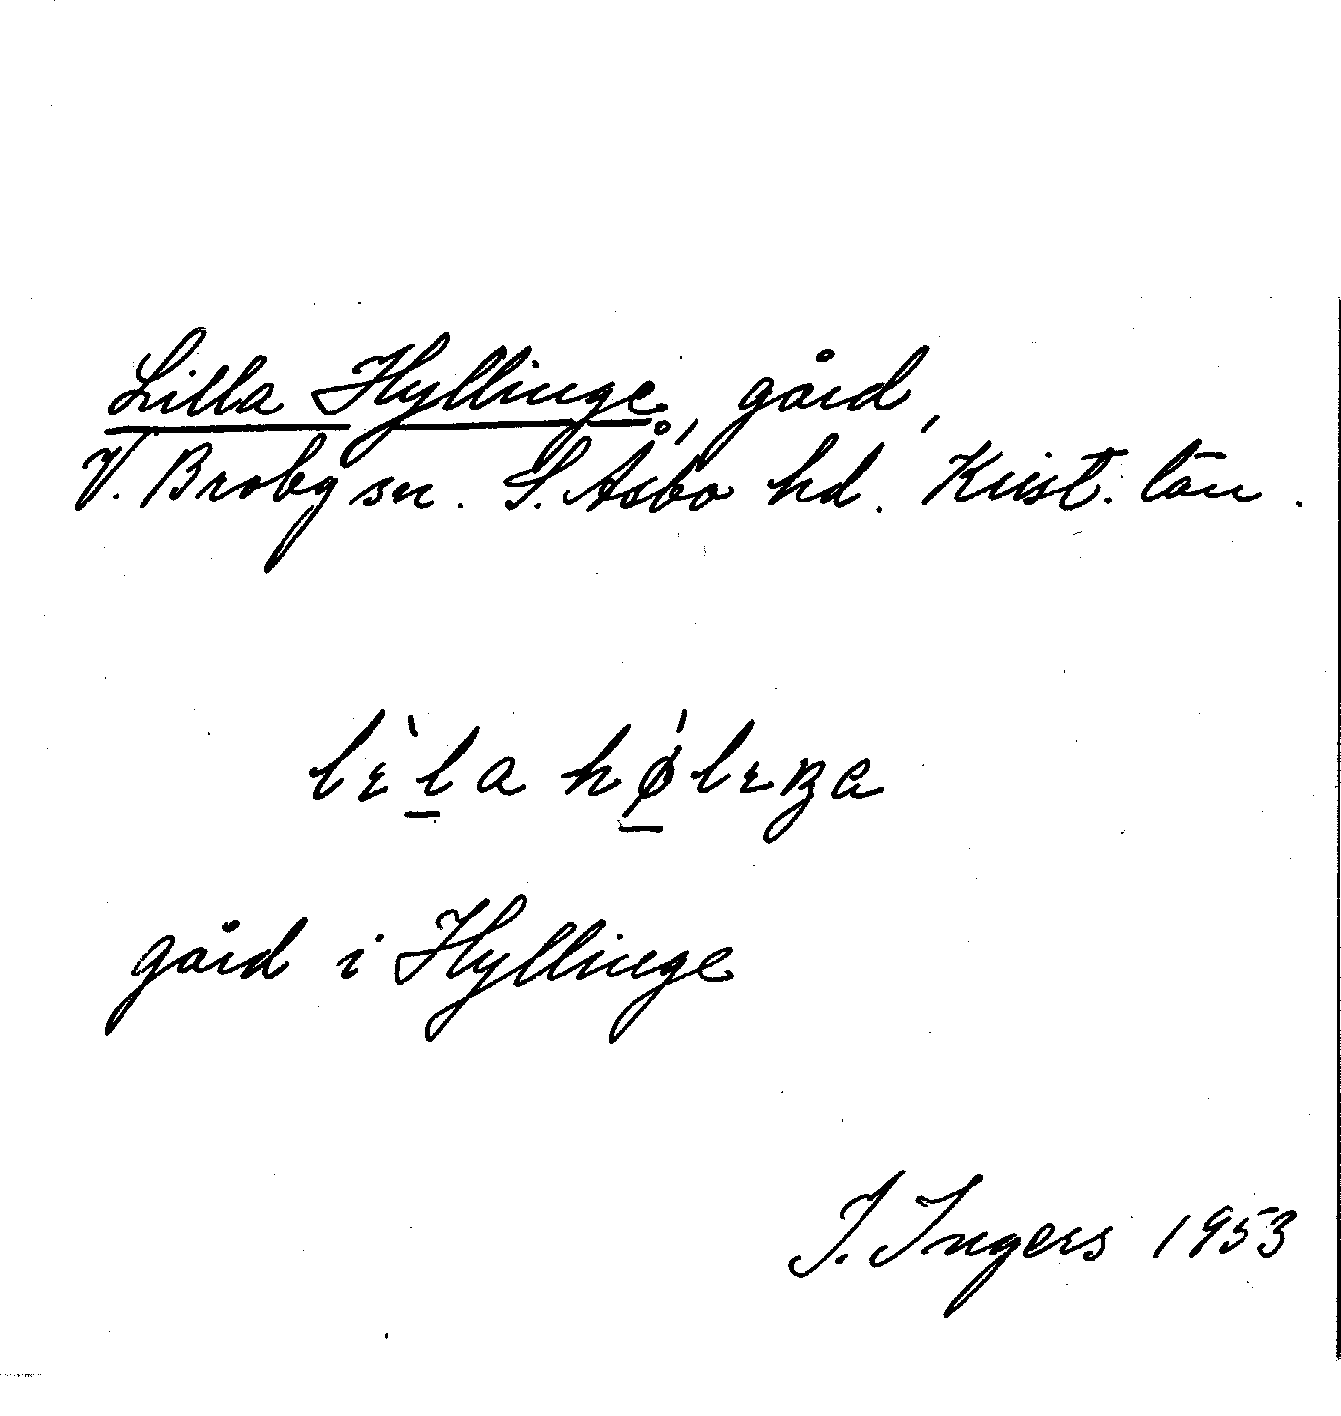 Lilla Hyllinge, gård,
V. Broby sn. S. Åsbo hd. Krist. län.
gård i Hyllinge
I. Ingers 1953